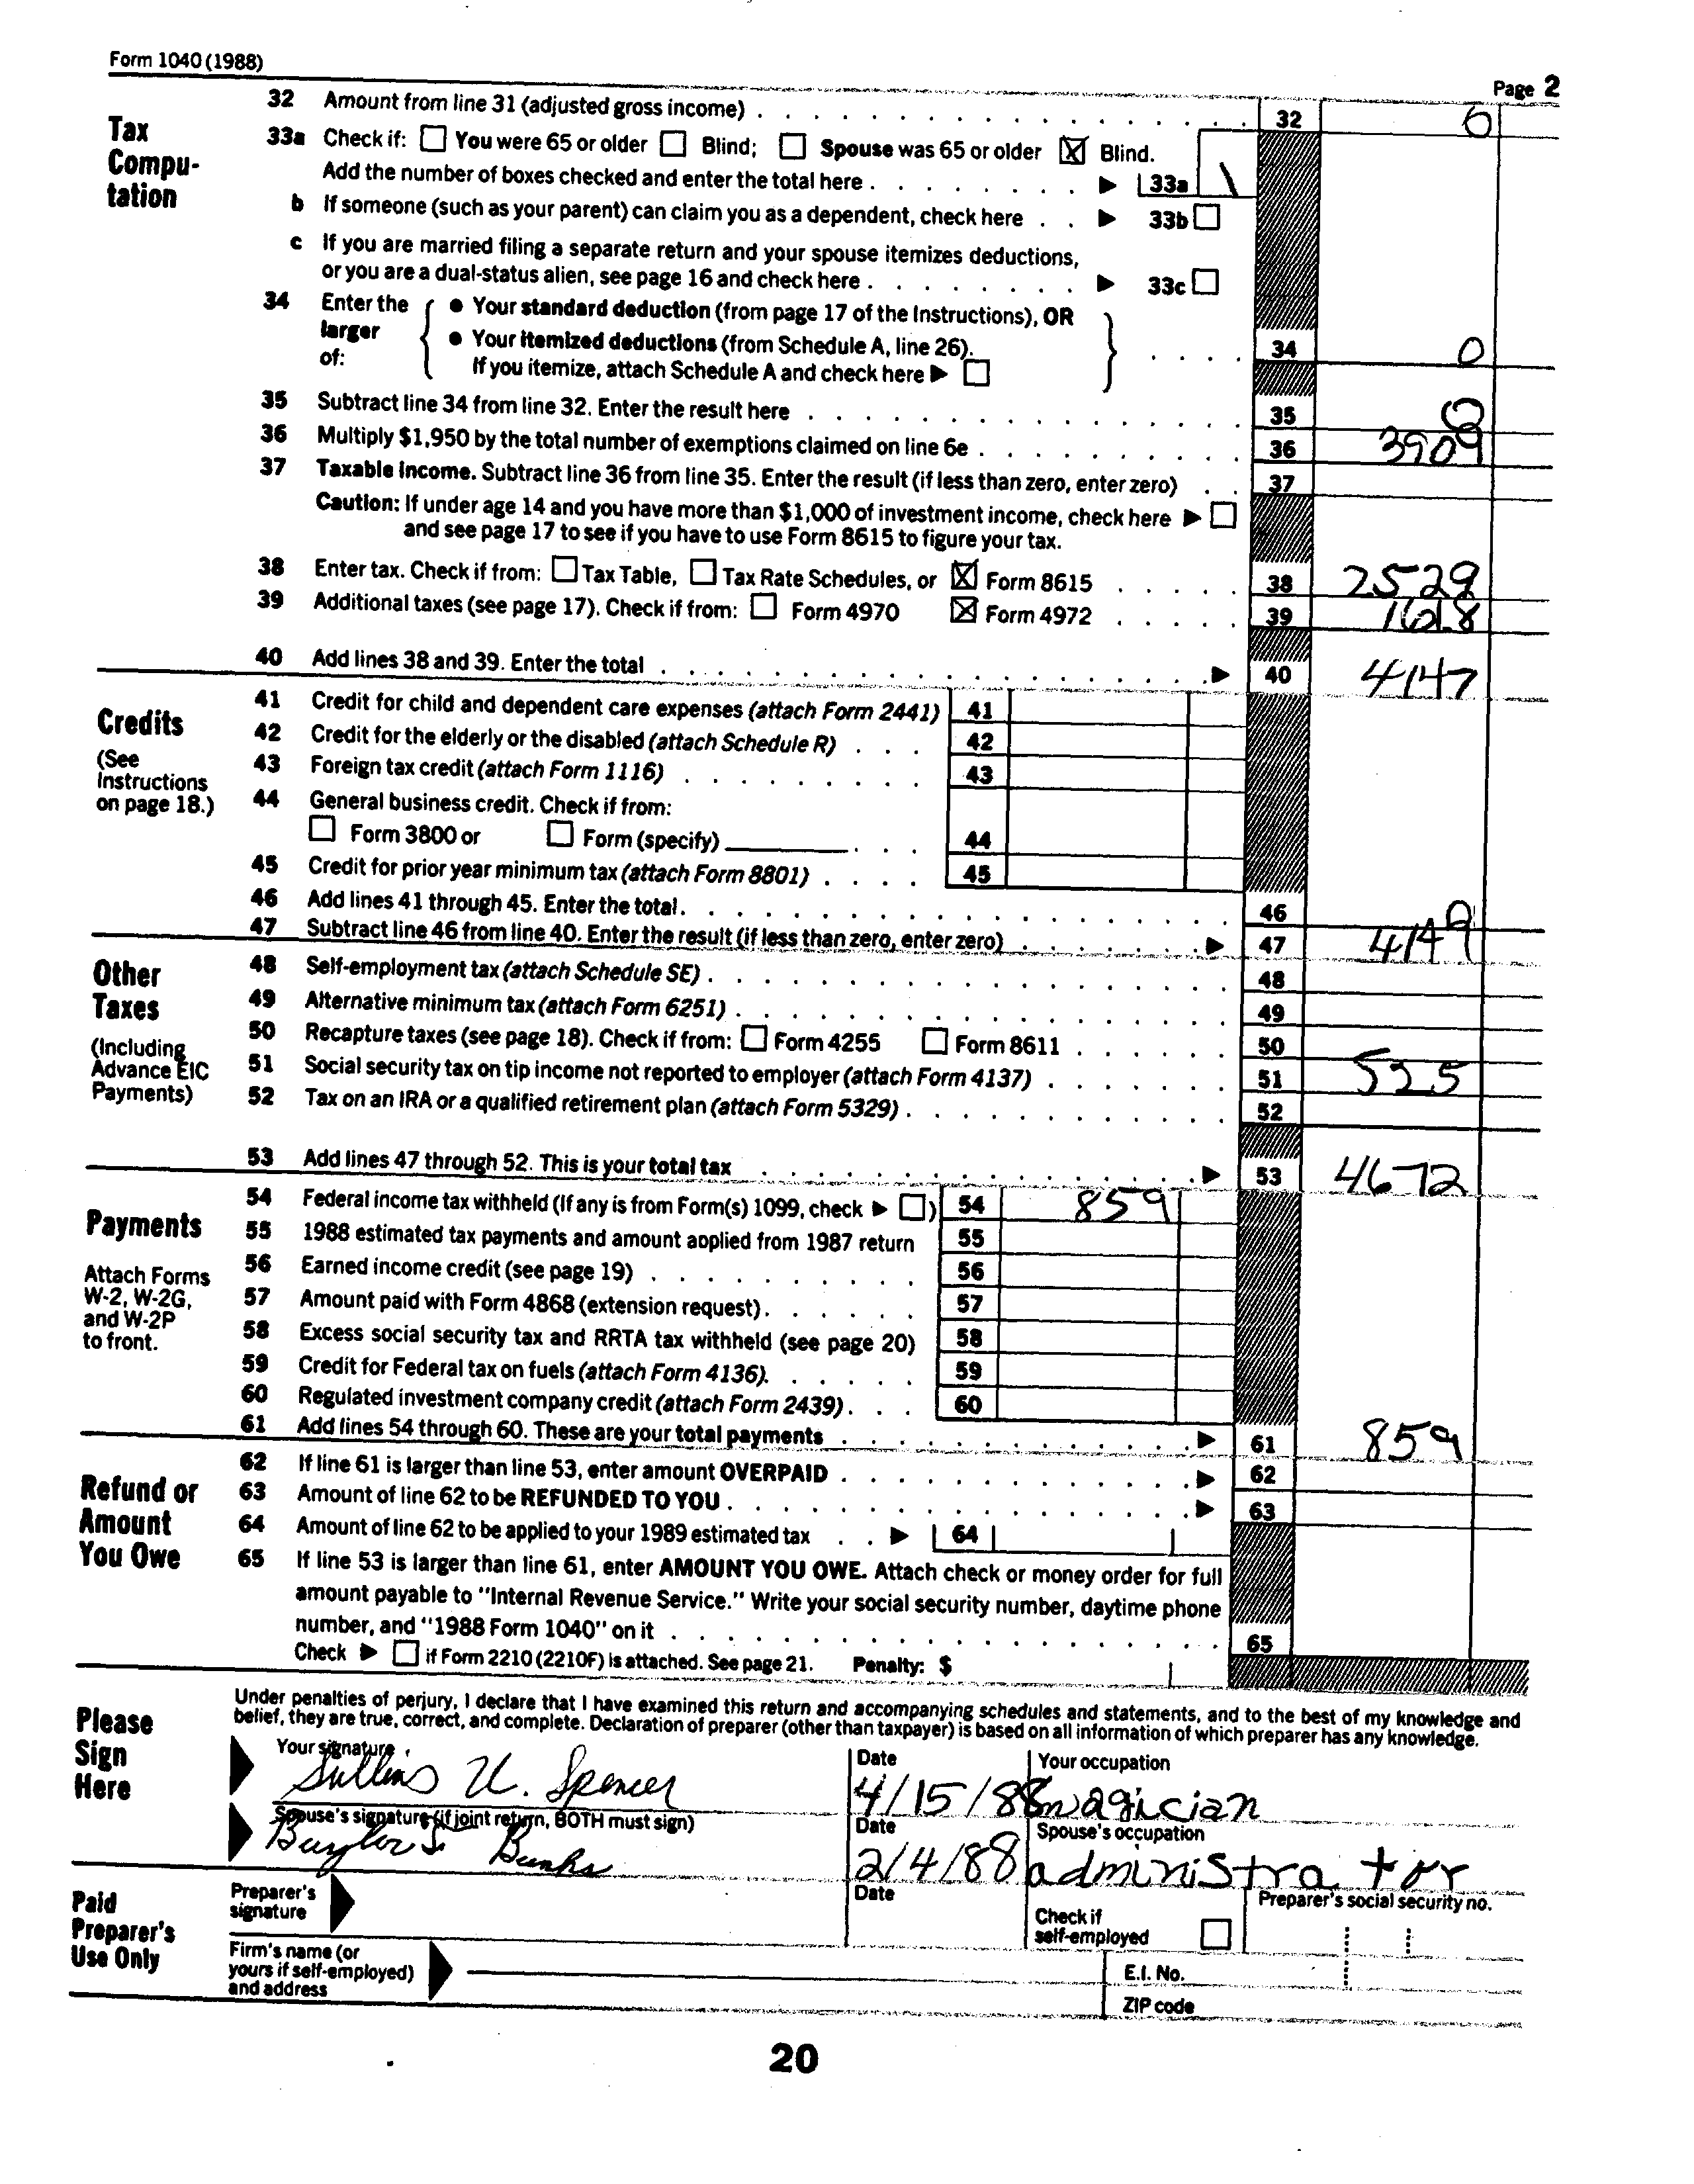 Form 1040 (1988)
Page 2
Tax Compu-tation
32 Amount from line 31 (adjusted gross income) 32 0
33a Check if: You were 65 or older Blind; Spouse was 65 or older X Blind.
Add the number of boxes checked and enter the total here 33a 1
b If someone (such as your parent) can claim you as a dependent, check here 33b
c If you are married filing a separate return and your spouse itemizes deductions,
or you are a dual-status alien, see page 16 and check here 33c
34 Enter the larger of:
• Your standard deduction (from page 17 of the Instructions), OR
• Your itemized deductions (from Schedule A, line 26).
If you itemize, attach Schedule A and check here 34 0
35 Subtract line 34 from line 32. Enter the result here 35 0
36 Multiply $1,950 by the total number of exemptions claimed on line 6e 36 390
37 Taxable income. Subtract line 36 from line 35. Enter the result (if less than zero, enter zero) 37
Caution: If under age 14 and you have more than $1,000 of investment income, check here
and see page 17 to see if you have to use Form 8615 to figure your tax.
38 Enter tax. Check if from: Tax Table, Tax Rate Schedules, or X Form 8615 38 2529
39 Additional taxes (see page 17). Check if from: Form 4970 X Form 4972 39 1618
40 Add lines 38 and 39. Enter the total 40 4147
Credits
(See Instructions on page 18.)
41 Credit for child and dependent care expenses (attach Form 2441) 41
42 Credit for the elderly or the disabled (attach Schedule R) 42
43 Foreign tax credit (attach Form 1116) 43
44 General business credit. Check if from:
Form 3800 or Form (specify) 44
45 Credit for prior year minimum tax (attach Form 8801) 45
46 Add lines 41 through 45. Enter the total. 46 0
47 Subtract line 46 from line 40. Enter the result (if less than zero, enter zero) 47 414
Other Taxes
(Including Advance EIC Payments)
48 Self-employment tax (attach Schedule SE) 48
49 Alternative minimum tax (attach Form 6251) 49
50 Recapture taxes (see page 18). Check if from: Form 4255 Form 8611 50
51 Social security tax on tip income not reported to employer (attach Form 4137) 51 525
52 Tax on an IRA or a qualified retirement plan (attach Form 5329) 52
53 Add lines 47 through 52. This is your total tax 53 4672
Payments
Attach Forms W-2, W-2G, and W-2P to front.
54 Federal income tax withheld (If any is from Form(s) 1099, check ) 54 859
55 1988 estimated tax payments and amount applied from 1987 return 55
56 Earned income credit (see page 19) 56
57 Amount paid with Form 4868 (extension request) 57
58 Excess social security tax and RRTA tax withheld (see page 20) 58
59 Credit for Federal tax on fuels (attach Form 4136). 59
60 Regulated investment company credit (attach Form 2439) 60
61 Add lines 54 through 60. These are your total payments 61 859
Refund or Amount You Owe
62 If line 61 is larger than line 53, enter amount OVERPAID 62
63 Amount of line 62 to be REFUNDED TO YOU 63
64 Amount of line 62 to be applied to your 1989 estimated tax 64
65 If line 53 is larger than line 61, enter AMOUNT YOU OWE. Attach check or money order for full
amount payable to "Internal Revenue Service." Write your social security number, daytime phone
number, and "1988 Form 1040" on it 65
Check if Form 2210 (2210F) is attached. See page 21. Penalty: $
Please Sign Here
Under penalties of perjury, I declare that I have examined this return and accompanying schedules and statements, and to the best of my knowledge and
belief, they are true, correct, and complete. Declaration of preparer (other than taxpayer) is based on all information of which preparer has any knowledge.
Your signature Date Your occupation
Sullins U. Spencer 4/15/88 magician
Spouse's signature (if joint return, BOTH must sign) Date Spouse's occupation
Banks 2/4/88 administrator
Paid Preparer's Use Only
Preparer's signature Date Check if self-employed Preparer's social security no.
Firm's name (or yours if self-employed) and address
E.I. No.
ZIP code
20